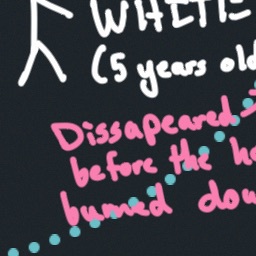 WHITE
(5 years old
Dissapeared
before the
burned